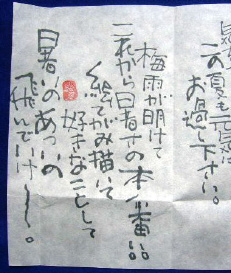 この夏も元気に
お過し下さい。
梅雨が明けて
これから暑さの本番。
絵てがみ描いて
好きなことして
暑いのあついの
飛んでいけ〜。